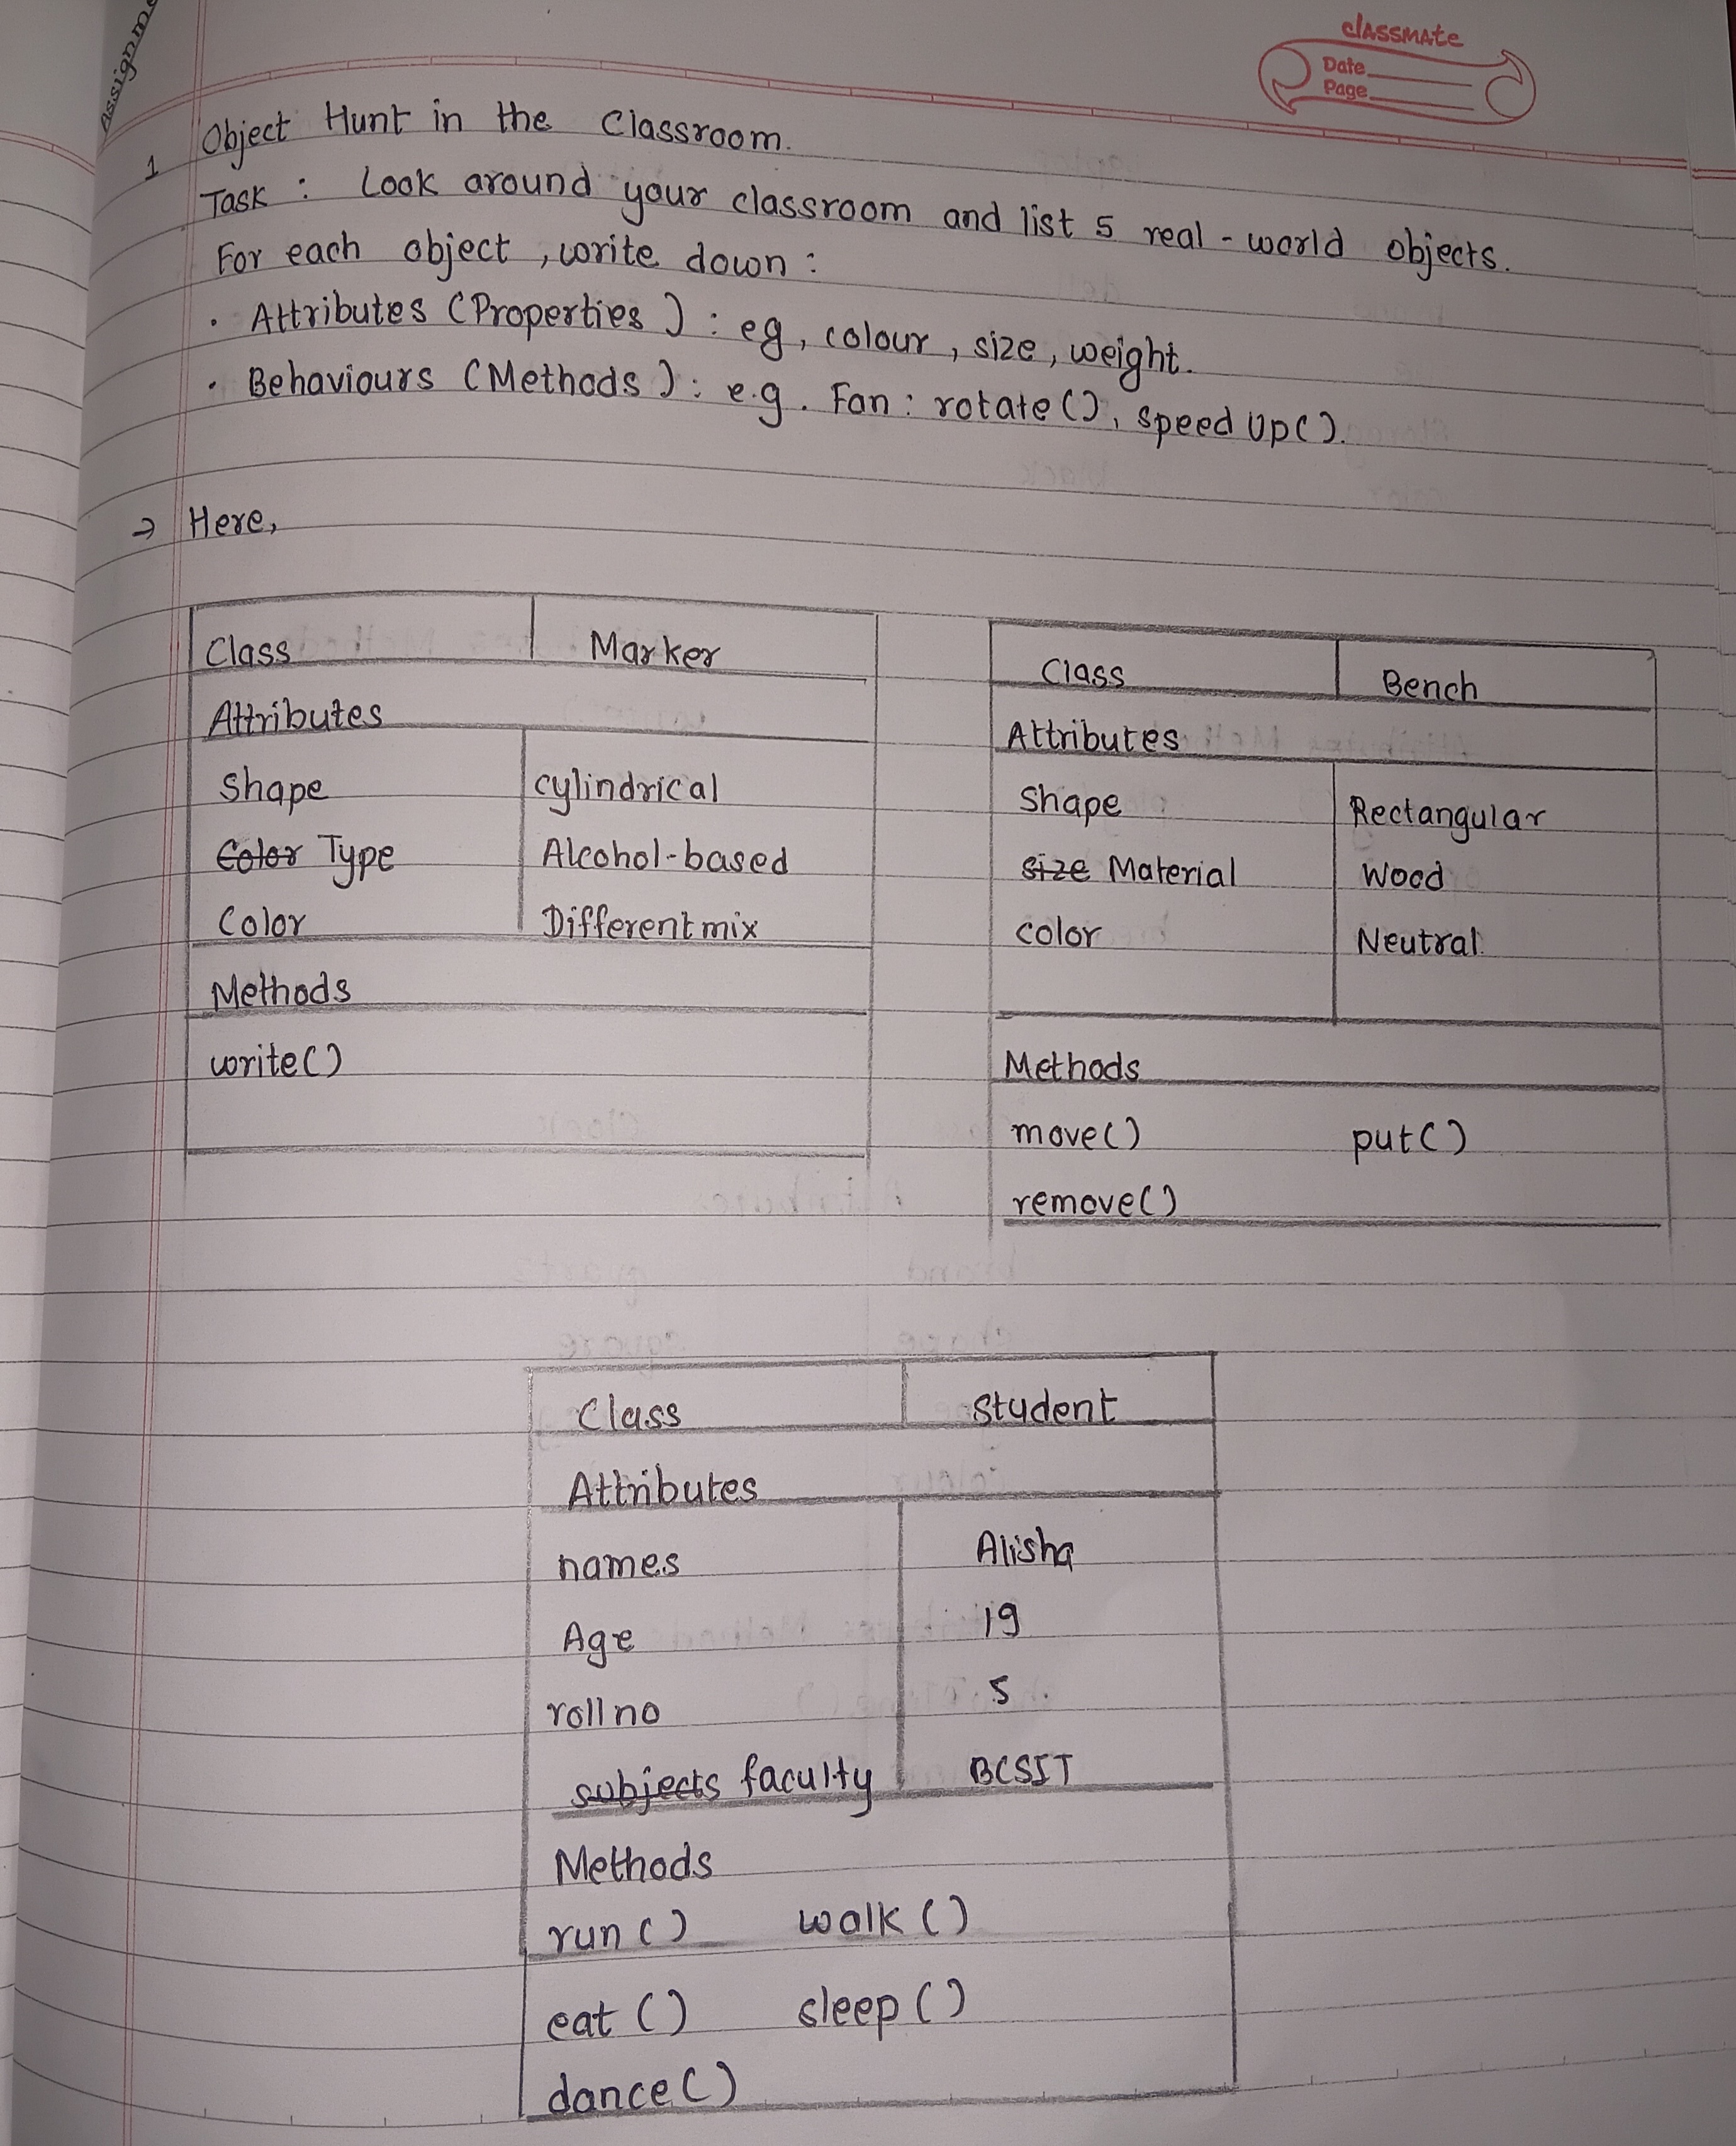 Assignme
classmate
Date
Page
1 Object Hunt in the Classroom.
Task : Look around your classroom and list 5 real-world objects.
For each object, write down :
• Attributes (Properties) : eg, colour, size, weight.
• Behaviours (Methods) : e.g. Fan : rotate(), speed Up().
→ Here,
Class Marker
Attributes
Shape cylindrical
Color Type Alcohol-based
Color Different mix
Methods
write()
Class Bench
Attributes
Shape Rectangular
size Material Wood
color Neutral
Methods
move() put()
remove()
Class Student
Attributes
names Alisha
Age 19
roll no 5
subjects faculty BCSIT
Methods
run() walk()
eat() sleep()
dance()